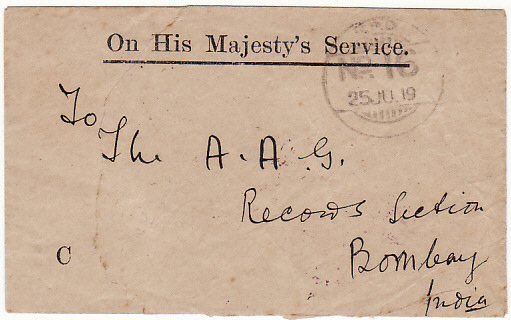 On His Majesty's Service.
No. 16
25 JU. 19
To
The A.A.G.
Records Section
C
Bombay
India